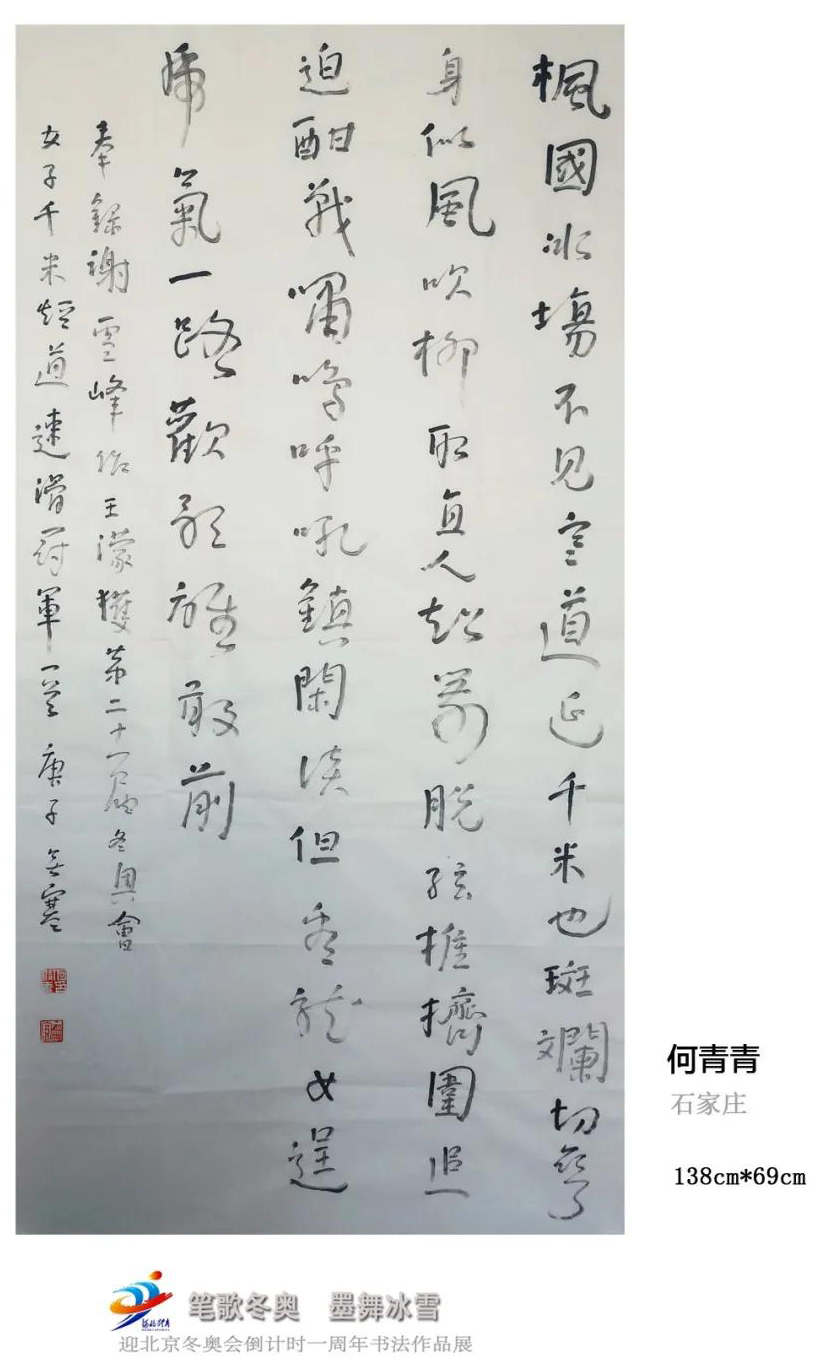 楓國冰場不見寬道延千米也斑斕切彎
身似風吹柳取直人超箭脫弦推擠圍追
迫酣戰嘯鳴呼吼鎮閑淡但看龍女逞
虎氣一路歡歌誰敢前
奉錄謝雲峰詠王濛獲第二十一屆冬奧會
女子千米短道速滑冠軍一首 庚子
何青青
石家庄
138cm*69cm
笔歌冬奥 墨舞冰雪
迎北京冬奥会倒计时一周年书法作品展